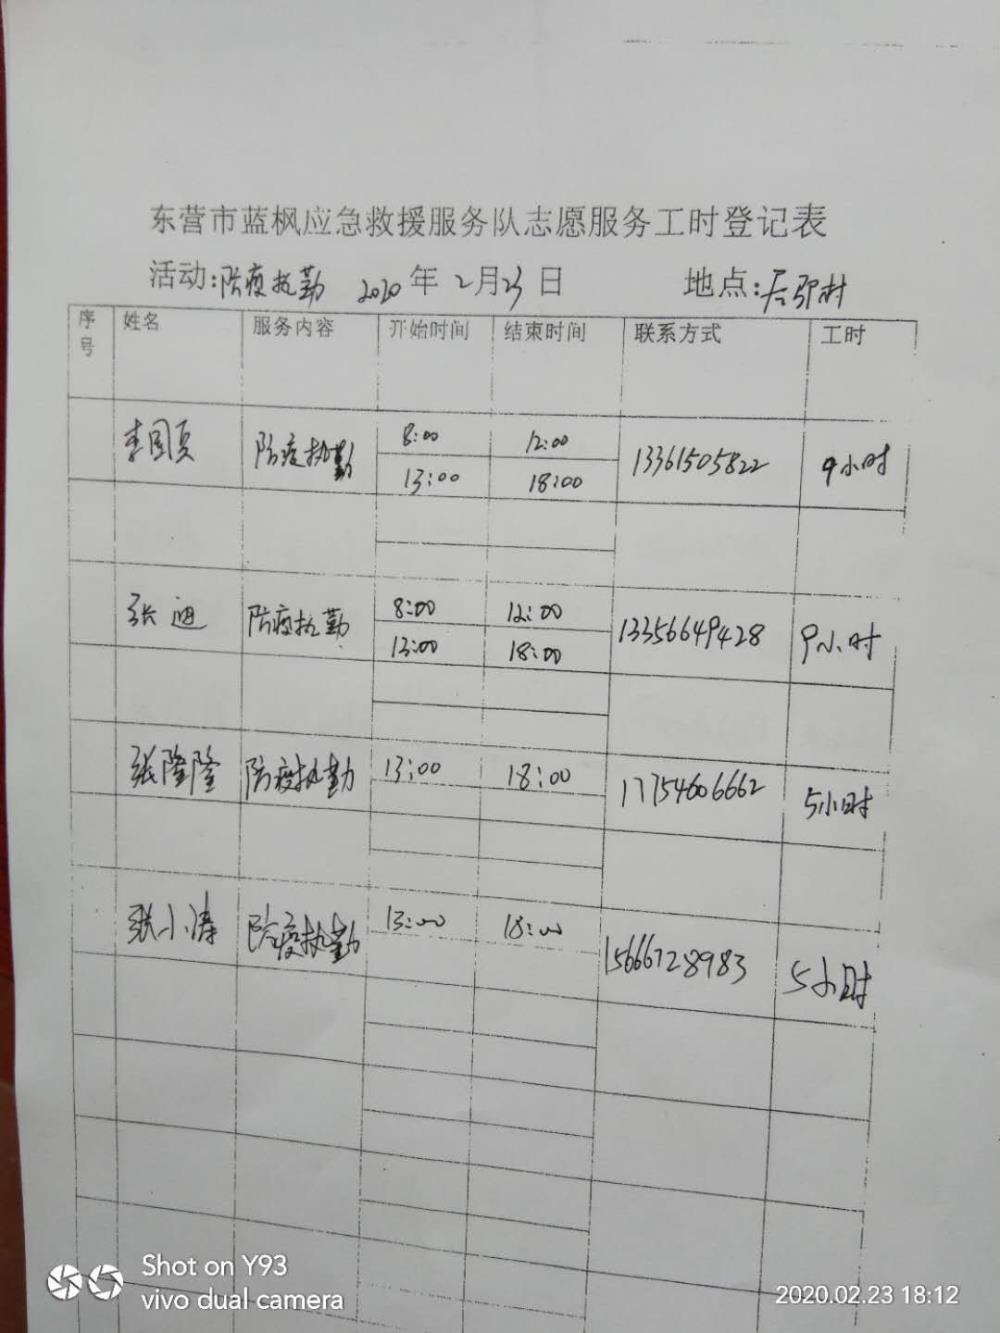 东营市蓝枫应急救援服务队志愿服务工时登记表
活动:防疫执勤 2020年2月23日 地点:后邵村
序号 姓名 服务内容 开始时间 结束时间 联系方式 工时
李国 防疫执勤 8:00 12:00 13361505822 9小时
13:00 18:00
张迪 防疫执勤 8:00 12:00 13356649428 9小时
13:00 18:00
张隆隆 防疫执勤 13:00 18:00 17754606662 5小时
张小涛 防疫执勤 13:00 18:00 15666728983 5小时
Shot on Y93
vivo dual camera
2020.02.23 18:12